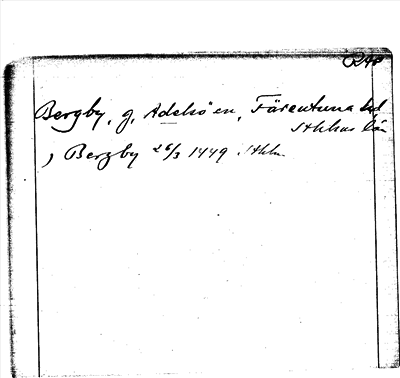 RAp
Bergby, g, Adelsöen, Färentuna hd,
Sthlms län
) Bergby 26/3 1449. Sthlm.